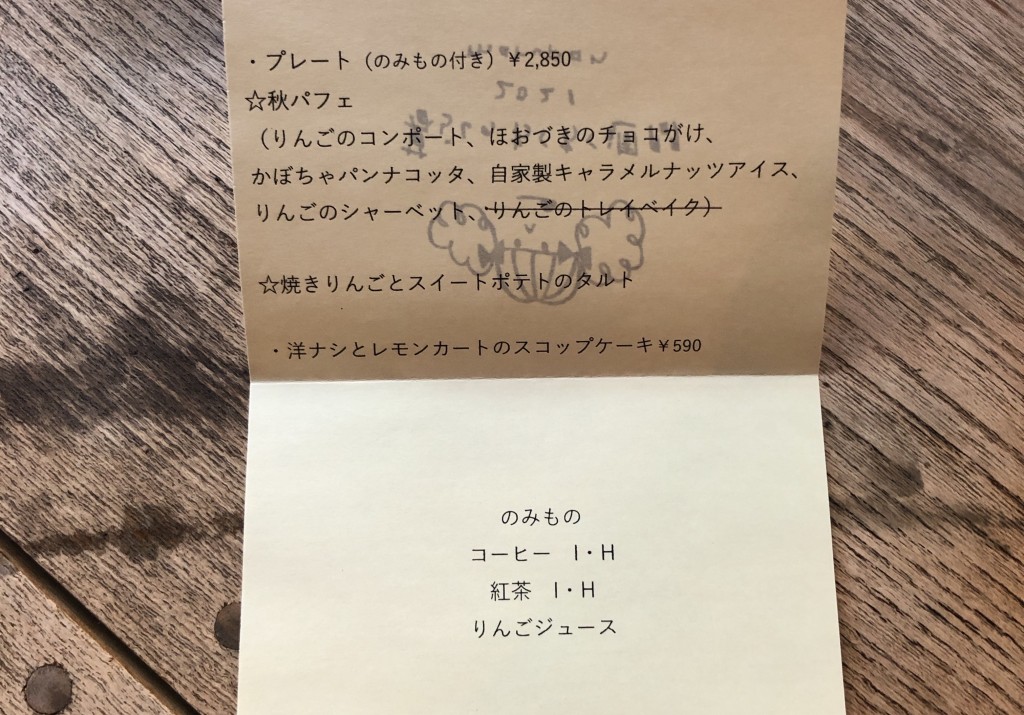 ・プレート（のみもの付き）￥2,850
☆秋パフェ
（りんごのコンポート、ほおづきのチョコがけ、
かぼちゃパンナコッタ、自家製キャラメルナッツアイス、
りんごのシャーベット、りんごのトレイベイク）
☆焼きりんごとスイートポテトのタルト
・洋ナシとレモンカートのスコップケーキ￥590
のみもの
コーヒー　I・H
紅茶　I・H
りんごジュース